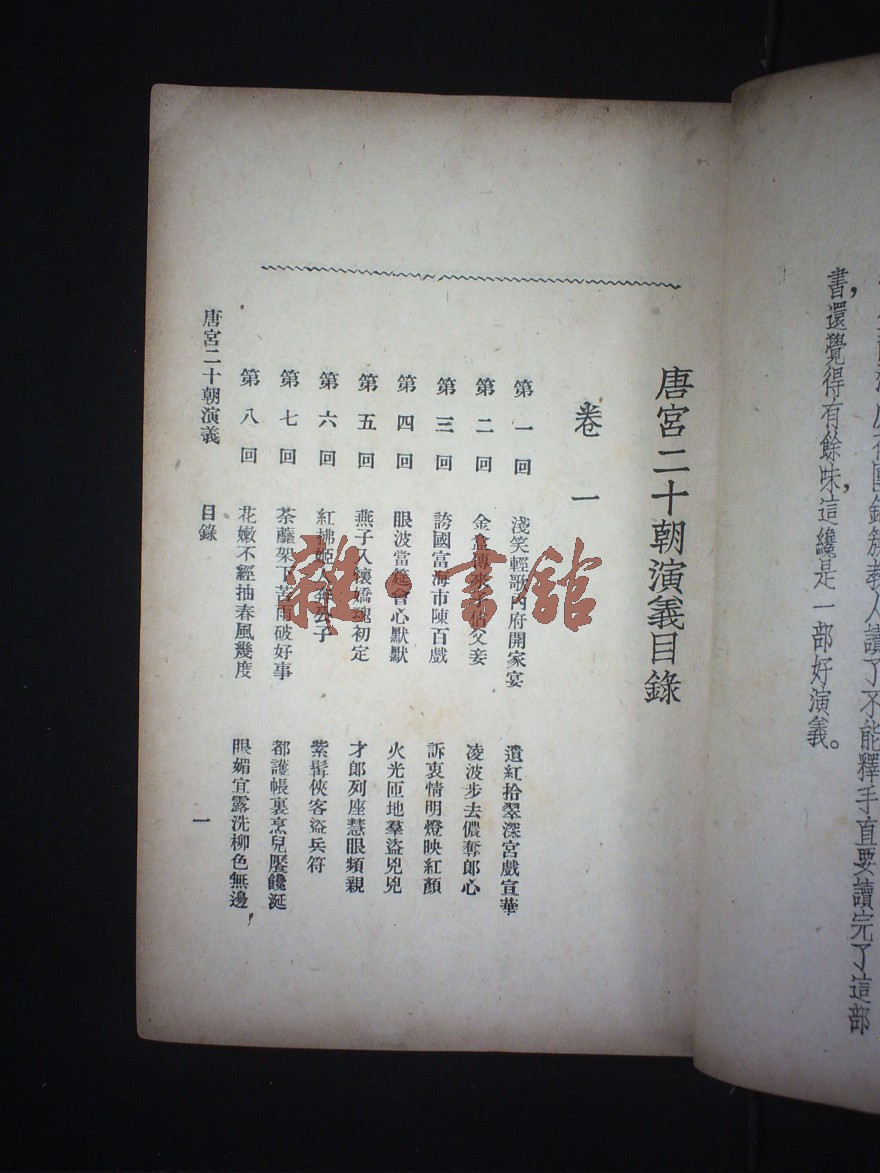 讀了不能釋手直要讀完了這部
書，還覺得有餘味，這纔是一部好演義。
唐宮二十朝演義目錄
卷一
第一回 淺笑輕歌內府開家宴 遺紅拾翠深宮戲宣華
第二回 金盒傳來子佔父妾 凌波步去儂奪郎心
第三回 誇國富海市陳百戲 訴衷情明燈映紅顏
第四回 眼波當筵會心默默 火光匝地羣盜兇兇
第五回 燕子入懷嬌魂初定 才郎列座慧眼頻親
第六回 紅拂姬人奔公子 紫髯俠客盜兵符
第七回 荼蘼架下苦雨破好事 都護帳裏烹兒饜饞涎
第八回 花嫩不經抽春風幾度 眼媚宜露洗柳色無邊
唐宮二十朝演義 目錄 一
雜·書館